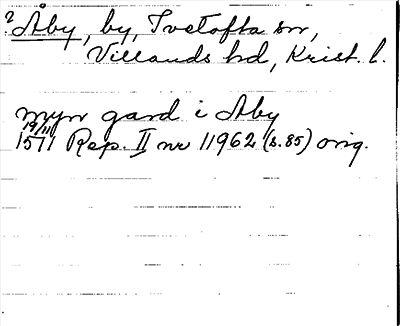 2 Åby, by, Tvetofta sn,
Villands hd, Krist. l.
myn gard i Aby
19/11
1571 Rep. II nr 11962 (s. 85) orig.